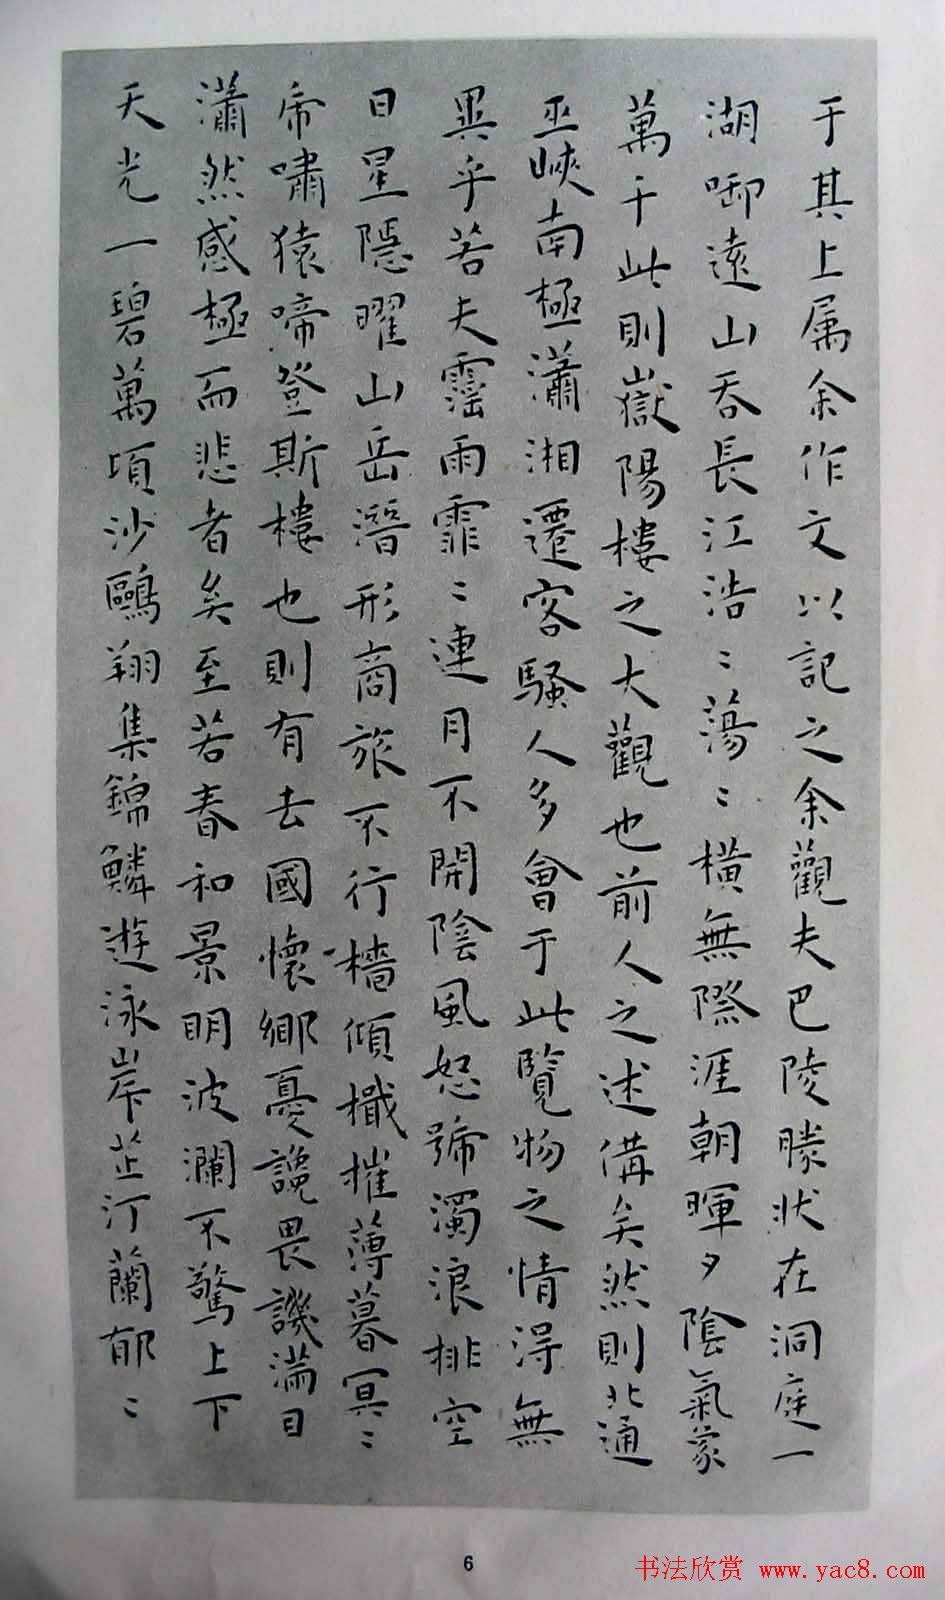 于其上属余作文以記之余觀夫巴陵勝状在洞庭一
湖啣遠山吞長江浩〻蕩〻橫無際涯朝暉夕陰氣象
萬千此則嶽陽樓之大觀也前人之述備矣然則北通
巫峽南極瀟湘遷客騷人多會于此覽物之情得無
異乎若夫霪雨霏〻連月不開陰風怒號濁浪排空
日星隱曜山岳潛形商旅不行檣傾檝摧薄暮冥〻
帝嘯猿啼登斯樓也則有去國懷鄉憂讒畏譏滿目
瀟然感極而悲者矣至若春和景明波瀾不驚上下
天光一碧萬頃沙鷗翔集錦鱗遊泳岸芷汀蘭郁〻
6
书法欣赏 www.yac8.com